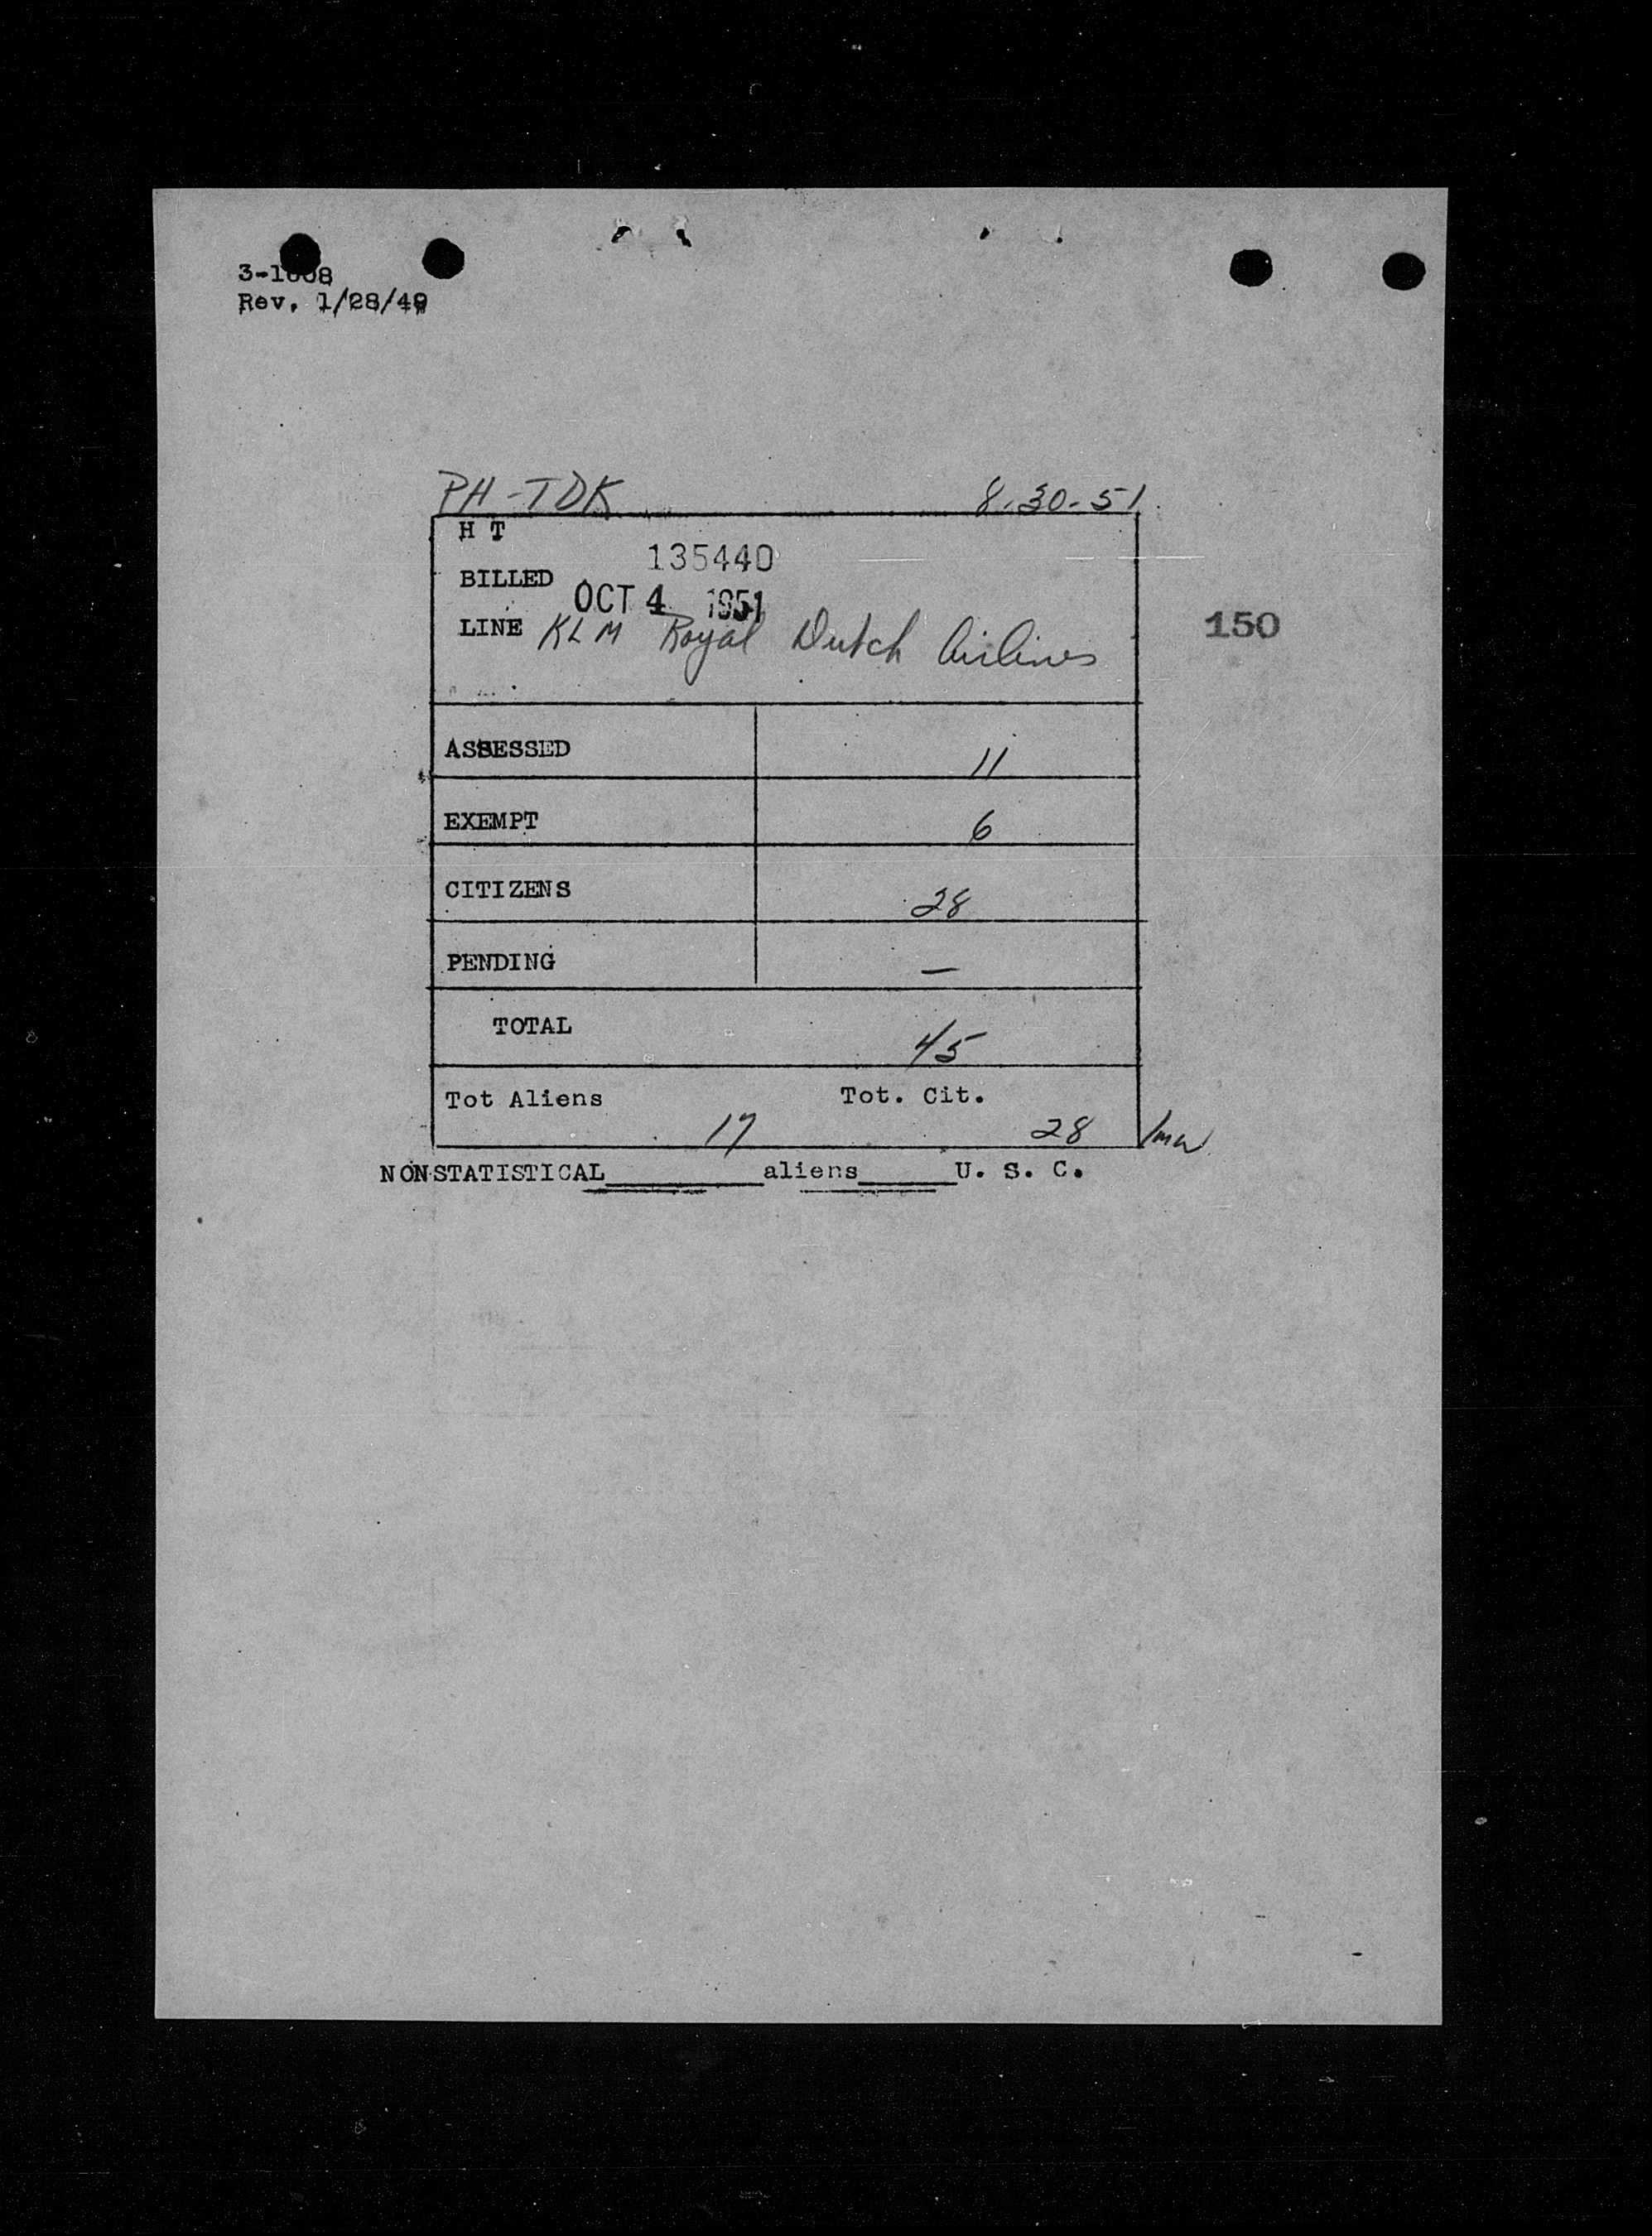 Rev. 1/28/49
PH-TDK 8-30-51
H T
135440
BILLED
OCT 4 1951
LINE KLM Royal Dutch Airlines
150
ASSESSED 11
EXEMPT 6
CITIZENS 28
PENDING —
TOTAL 45
Tot Aliens Tot. Cit.
17 28
NONSTATISTICAL________aliens_____U. S. C.